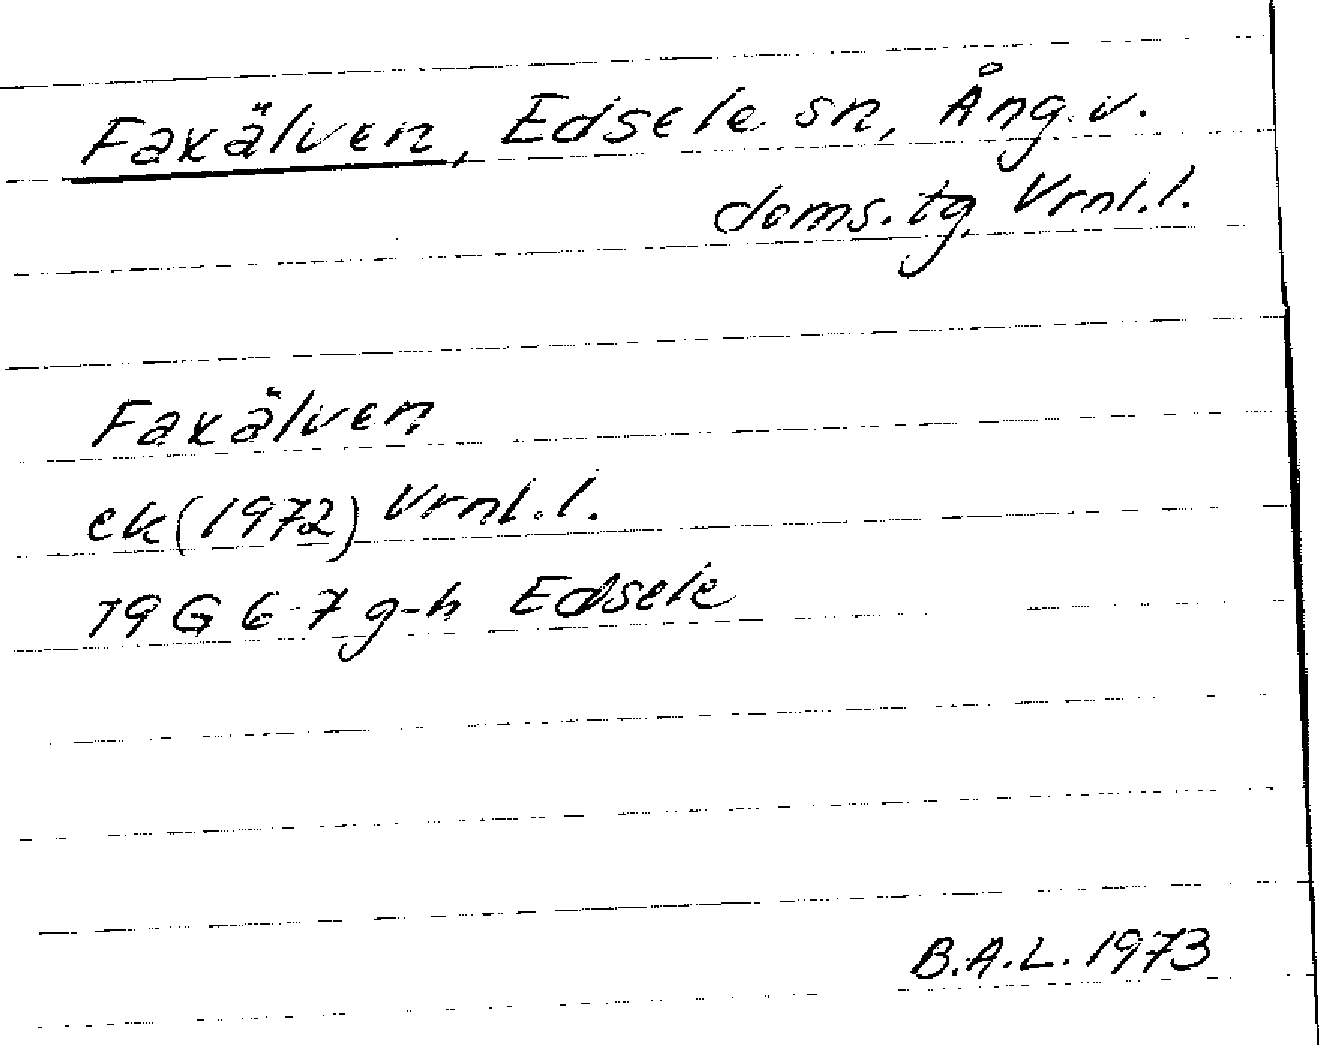 Faxälven, Edsele sn, Ång. v.
doms. tg, Vrnl. l.
Faxälven
ek (1972) Vrnl. l.
19 G 6-7 g-h Edsele
B.A.L. 1973